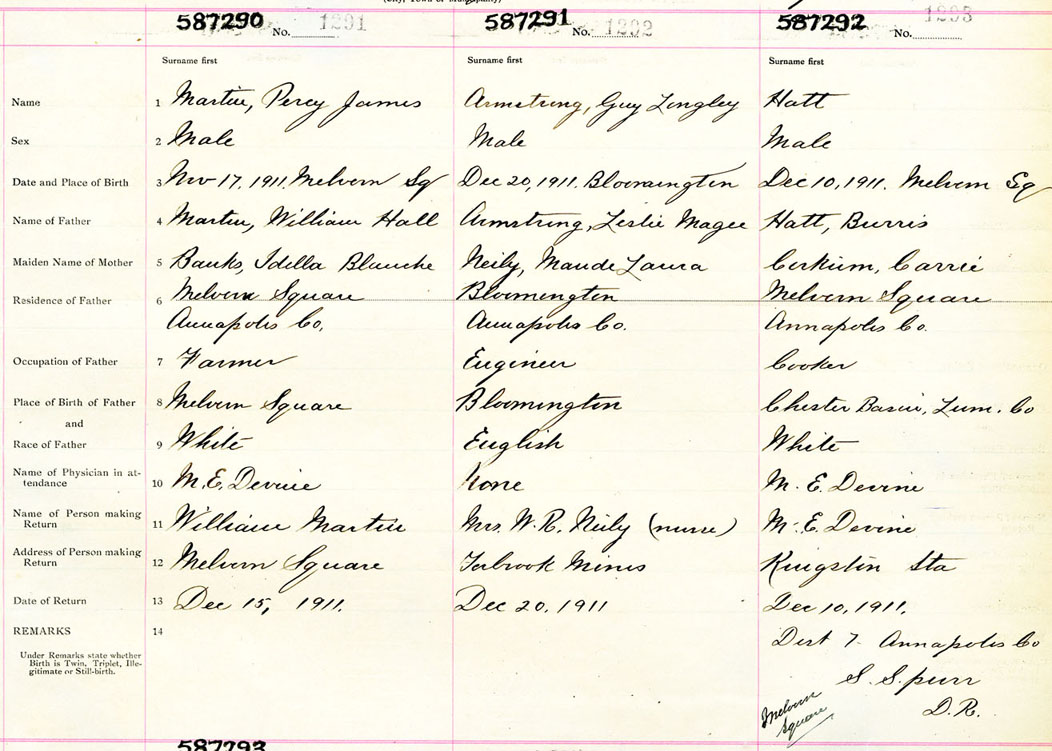 (City, Town or Municipality)
587290 No. 1291 587291 No. 1292 587292 No. 1293
Surname first Surname first Surname first
Name 1 Martin, Percy James Armstrong, Guy Longley Hatt
Sex 2 Male Male Male
Date and Place of Birth 3 Nov 17, 1911, Melvern Sq Dec 20, 1911. Bloomington Dec 10, 1911. Melvern Sq
Name of Father 4 Martin, William Hall Armstrong, Leslie Magee Hatt, Burris
Maiden Name of Mother 5 Banks, Idella Blanche Neily, Maude Laura Corkum, Carrie
Residence of Father 6 Melvern Square Bloomington Melvern Square
Annapolis Co, Annapolis Co. Annapolis Co.
Occupation of Father 7 Farmer Engineer Cooker
Place of Birth of Father 8 Melvern Square Bloomington Chester Basin, Lun. Co
and
Race of Father 9 White English White
Name of Physician in at-
tendance 10 M. E. Devine None M. E. Devine
Name of Person making
Return 11 William Martin Mrs. W. R. Neily (nurse) M. E. Devine
Address of Person making
Return 12 Melvern Square Torbrook Mines Kingston Sta
Date of Return 13 Dec 15, 1911. Dec 20, 1911 Dec 10, 1911.
REMARKS 14
Dist 7 Annapolis Co
Under Remarks state whether
Birth is Twin, Triplet, Ille-
gitimate or Still-birth.
S. Spurr
D. R.
Melvern
Square
587293